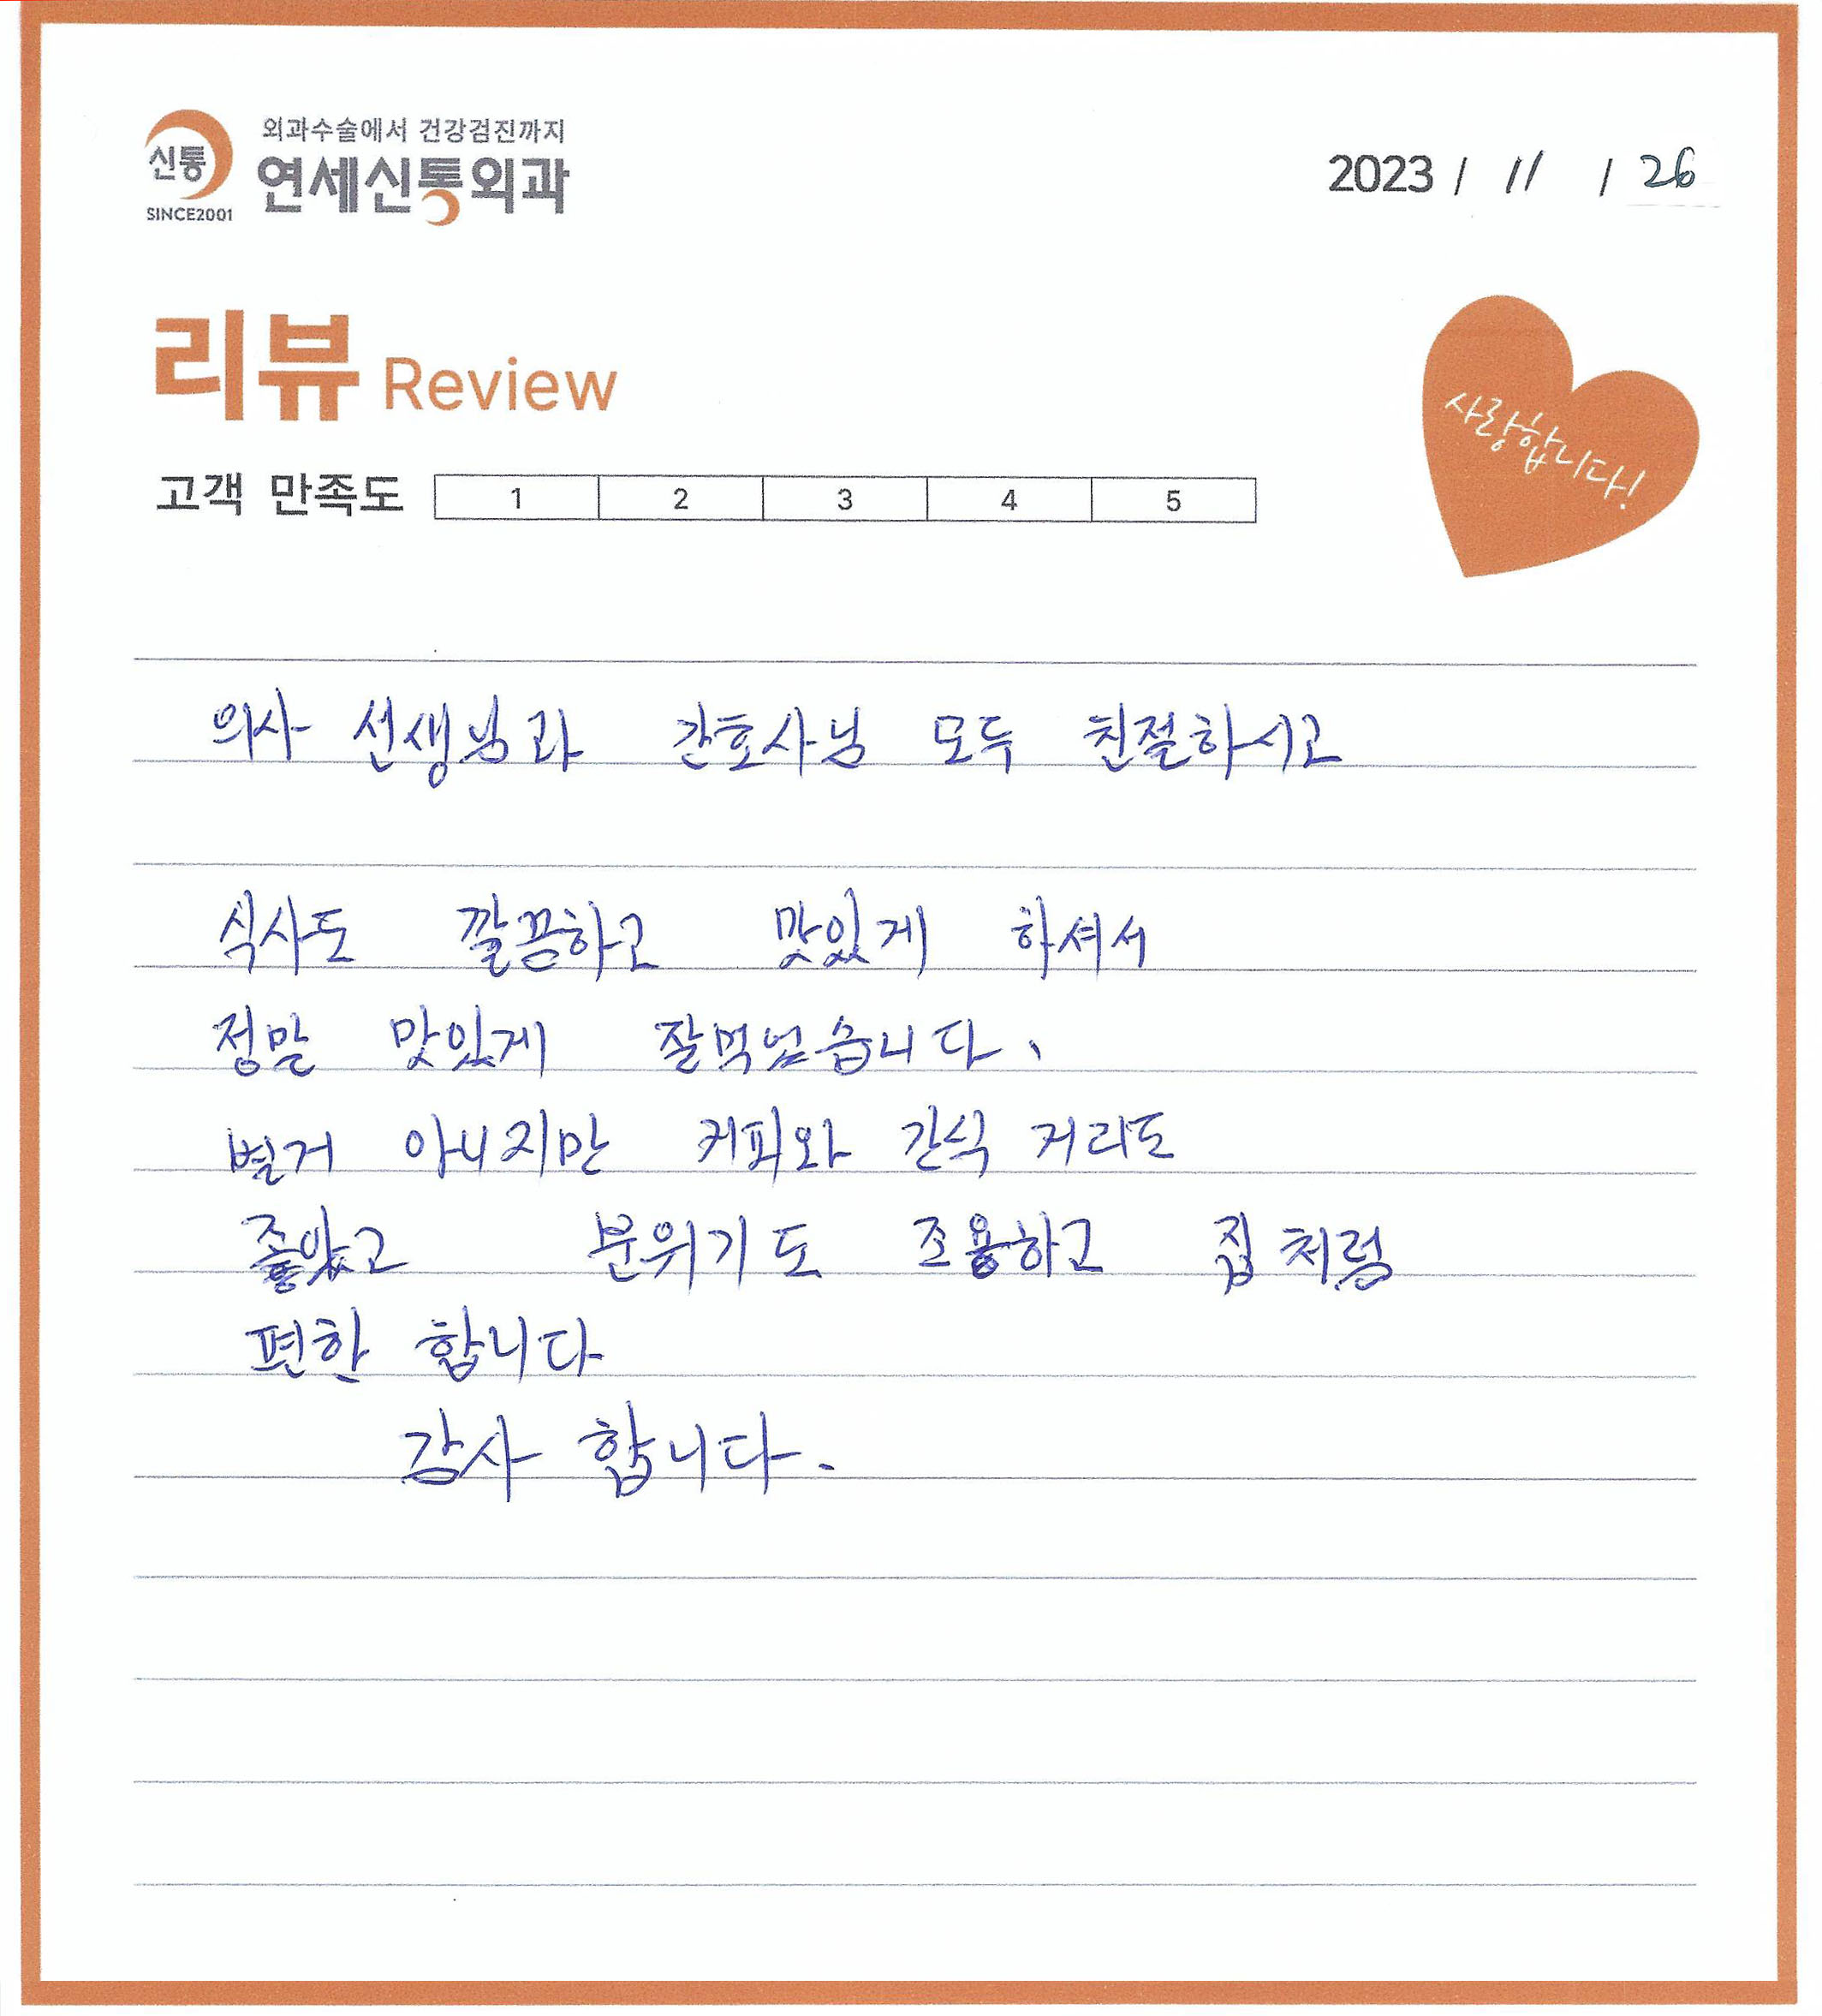 외과수술에서 건강검진까지
신통 연세신통외과
SINCE2001
2023 / 11 / 26
리뷰 Review
사랑합니다!
고객 만족도 1 2 3 4 5
의사 선생님과 간호사님 모두 친절하시고
식사도 깔끔하고 맛있게 하셔서
정말 맛있게 잘먹었습니다.
별거 아니지만 커피와 간식 거리도
좋았고 분위기도 조용하고 집처럼
편한 합니다
감사 합니다.